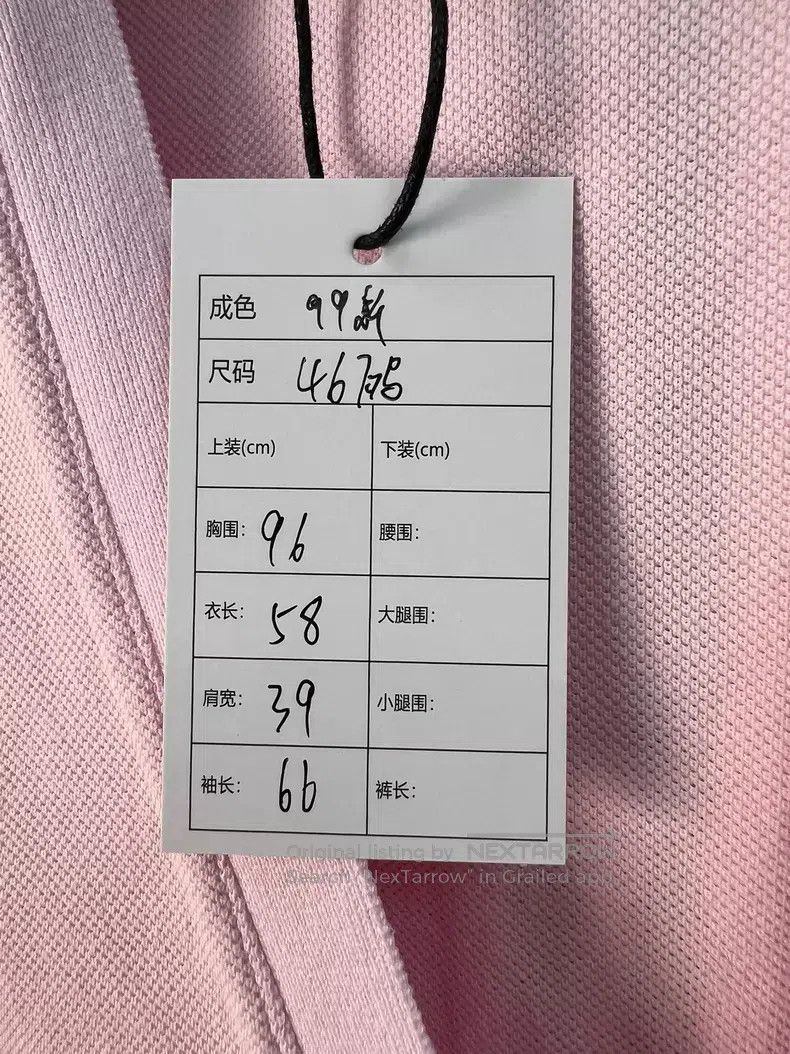 成色 99新
尺码 46码
上装(cm) 下装(cm)
胸围: 96 腰围:
衣长: 58 大腿围:
肩宽: 39 小腿围:
袖长: 66 裤长:
Original listing by NEXTARROW
Search "NexTarrow" in Grailed app